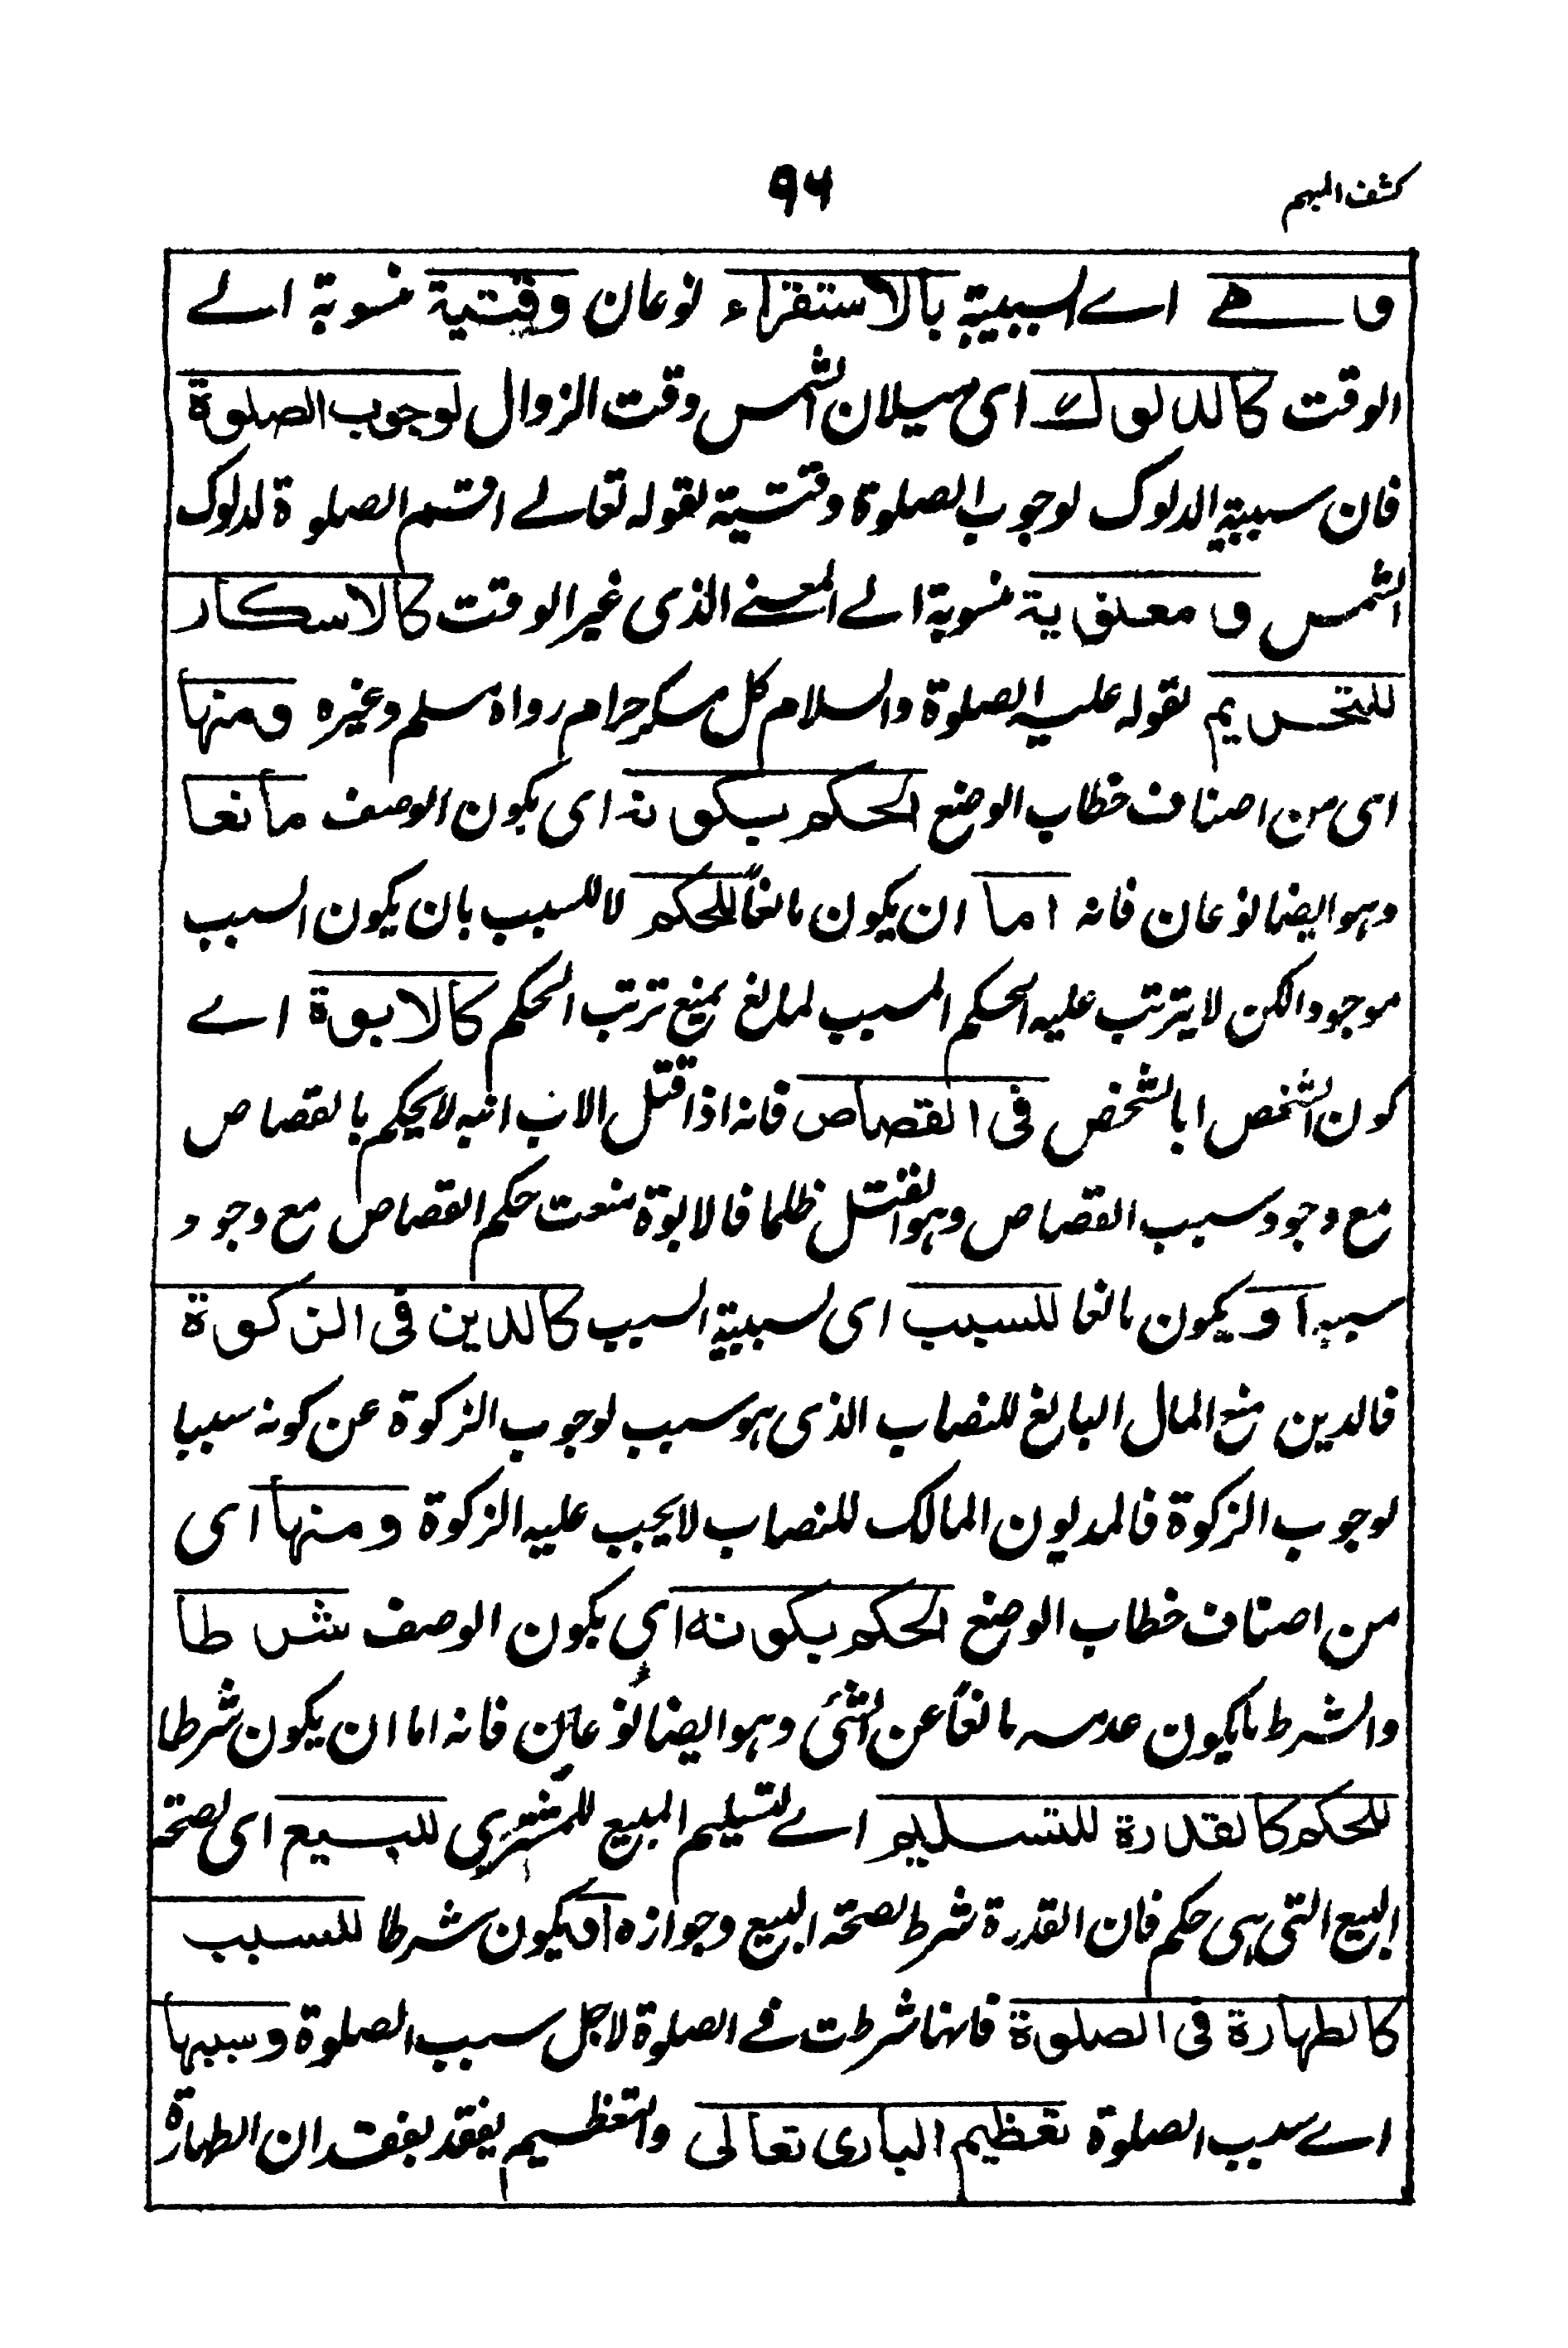 كشف المبهم
٩٦
وهي اے السببية بالاستقراء نوعان وقتية منسوبة الے
الوقت كالدلوك اى ميلان الشمس وقت الزوال لوجوب الصلوة
فان سببية الدلوك لوجوب الصلوة وقتية لقوله تعالے اقم الصلوة لدلوك
الشمس ومعنوية منسوبة الے المعنے الذى غير الوقت كالاسكار
للتحريم لقوله عليه الصلوة والسلام كل مسكر حرام رواه مسلم وغيره ومنها
اى من اصناف خطاب الوضع الحكم بكونه اى بكون الوصف مانعا
وهو ايضا نوعان فانه اما ان يكون مانعاً للحكم لا للسبب بان يكون السبب
موجودا لكن لا يترتب عليه الحكم المسبب لمانع يمنع ترتب الحكم كالابوة اے
كون الشخص ابا لشخص فى القصاص فانه اذا قتل الاب ابنه لا يحكم بالقصاص
مع وجود سبب القصاص وهو القتل ظلما فالابوة منعت حكم القصاص مع وجود
سببه او يكون مانعا للسبب اى لسببية السبب كالدين فى الزكوة
فالدين منع المال البالغ للنصاب الذى هو سبب لوجوب الزكوة عن كونه سببا
لوجوب الزكوة فالمديون المالك للنصاب لا يجب عليه الزكوة ومنها اى
من اصناف خطاب الوضع الحكم بكونه اى بكون الوصف شرطا
والشرط ما يكون عدمه مانعاً عن الشئ وهو ايضا نوعان فانه اما ان يكون شرطا
للحكم كالقدرة للتسليم اے لتسليم المبيع للمشترى للبيع اى لصحة
البيع التى هى حكم فان القدرة شرط لصحة البيع وجوازه او يكون شرطا للسبب
كالطهارة فى الصلوة فانها شرطت فے الصلوة لاجل سبب الصلوة وسببها
اے سبب الصلوة تعظيم البارى تعالى والتعظيم يفقد بفقدان الطهارة